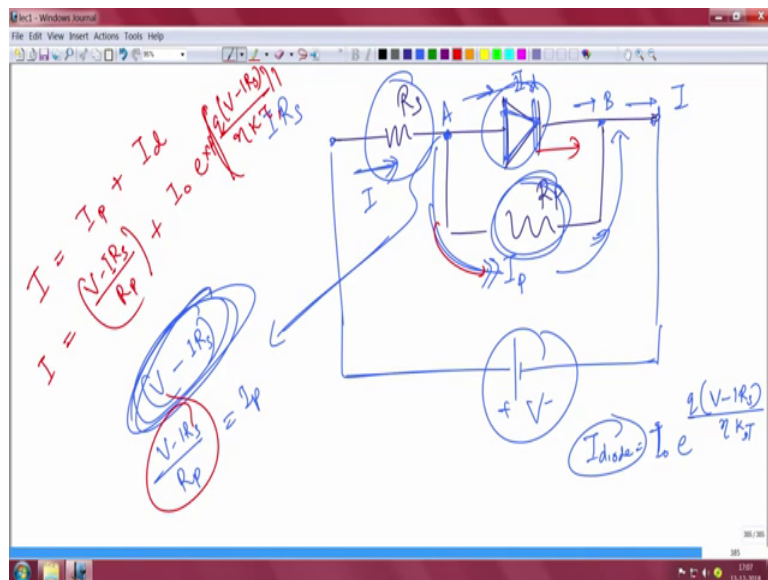 lec1 - Windows Journal
File Edit View Insert Actions Tools Help
I = Ip + Id
I = (V-IRs)/Rp + Io exp[q(V-IRs)/ηKT]
IRs
Rs
A
Id
B
I
I
Rp
Ip
(V-IRs)
V-IRs/Rp = Ip
+ V -
Idiode = Io e q(V-IRs)/ηKBT
386/386
385
17:07